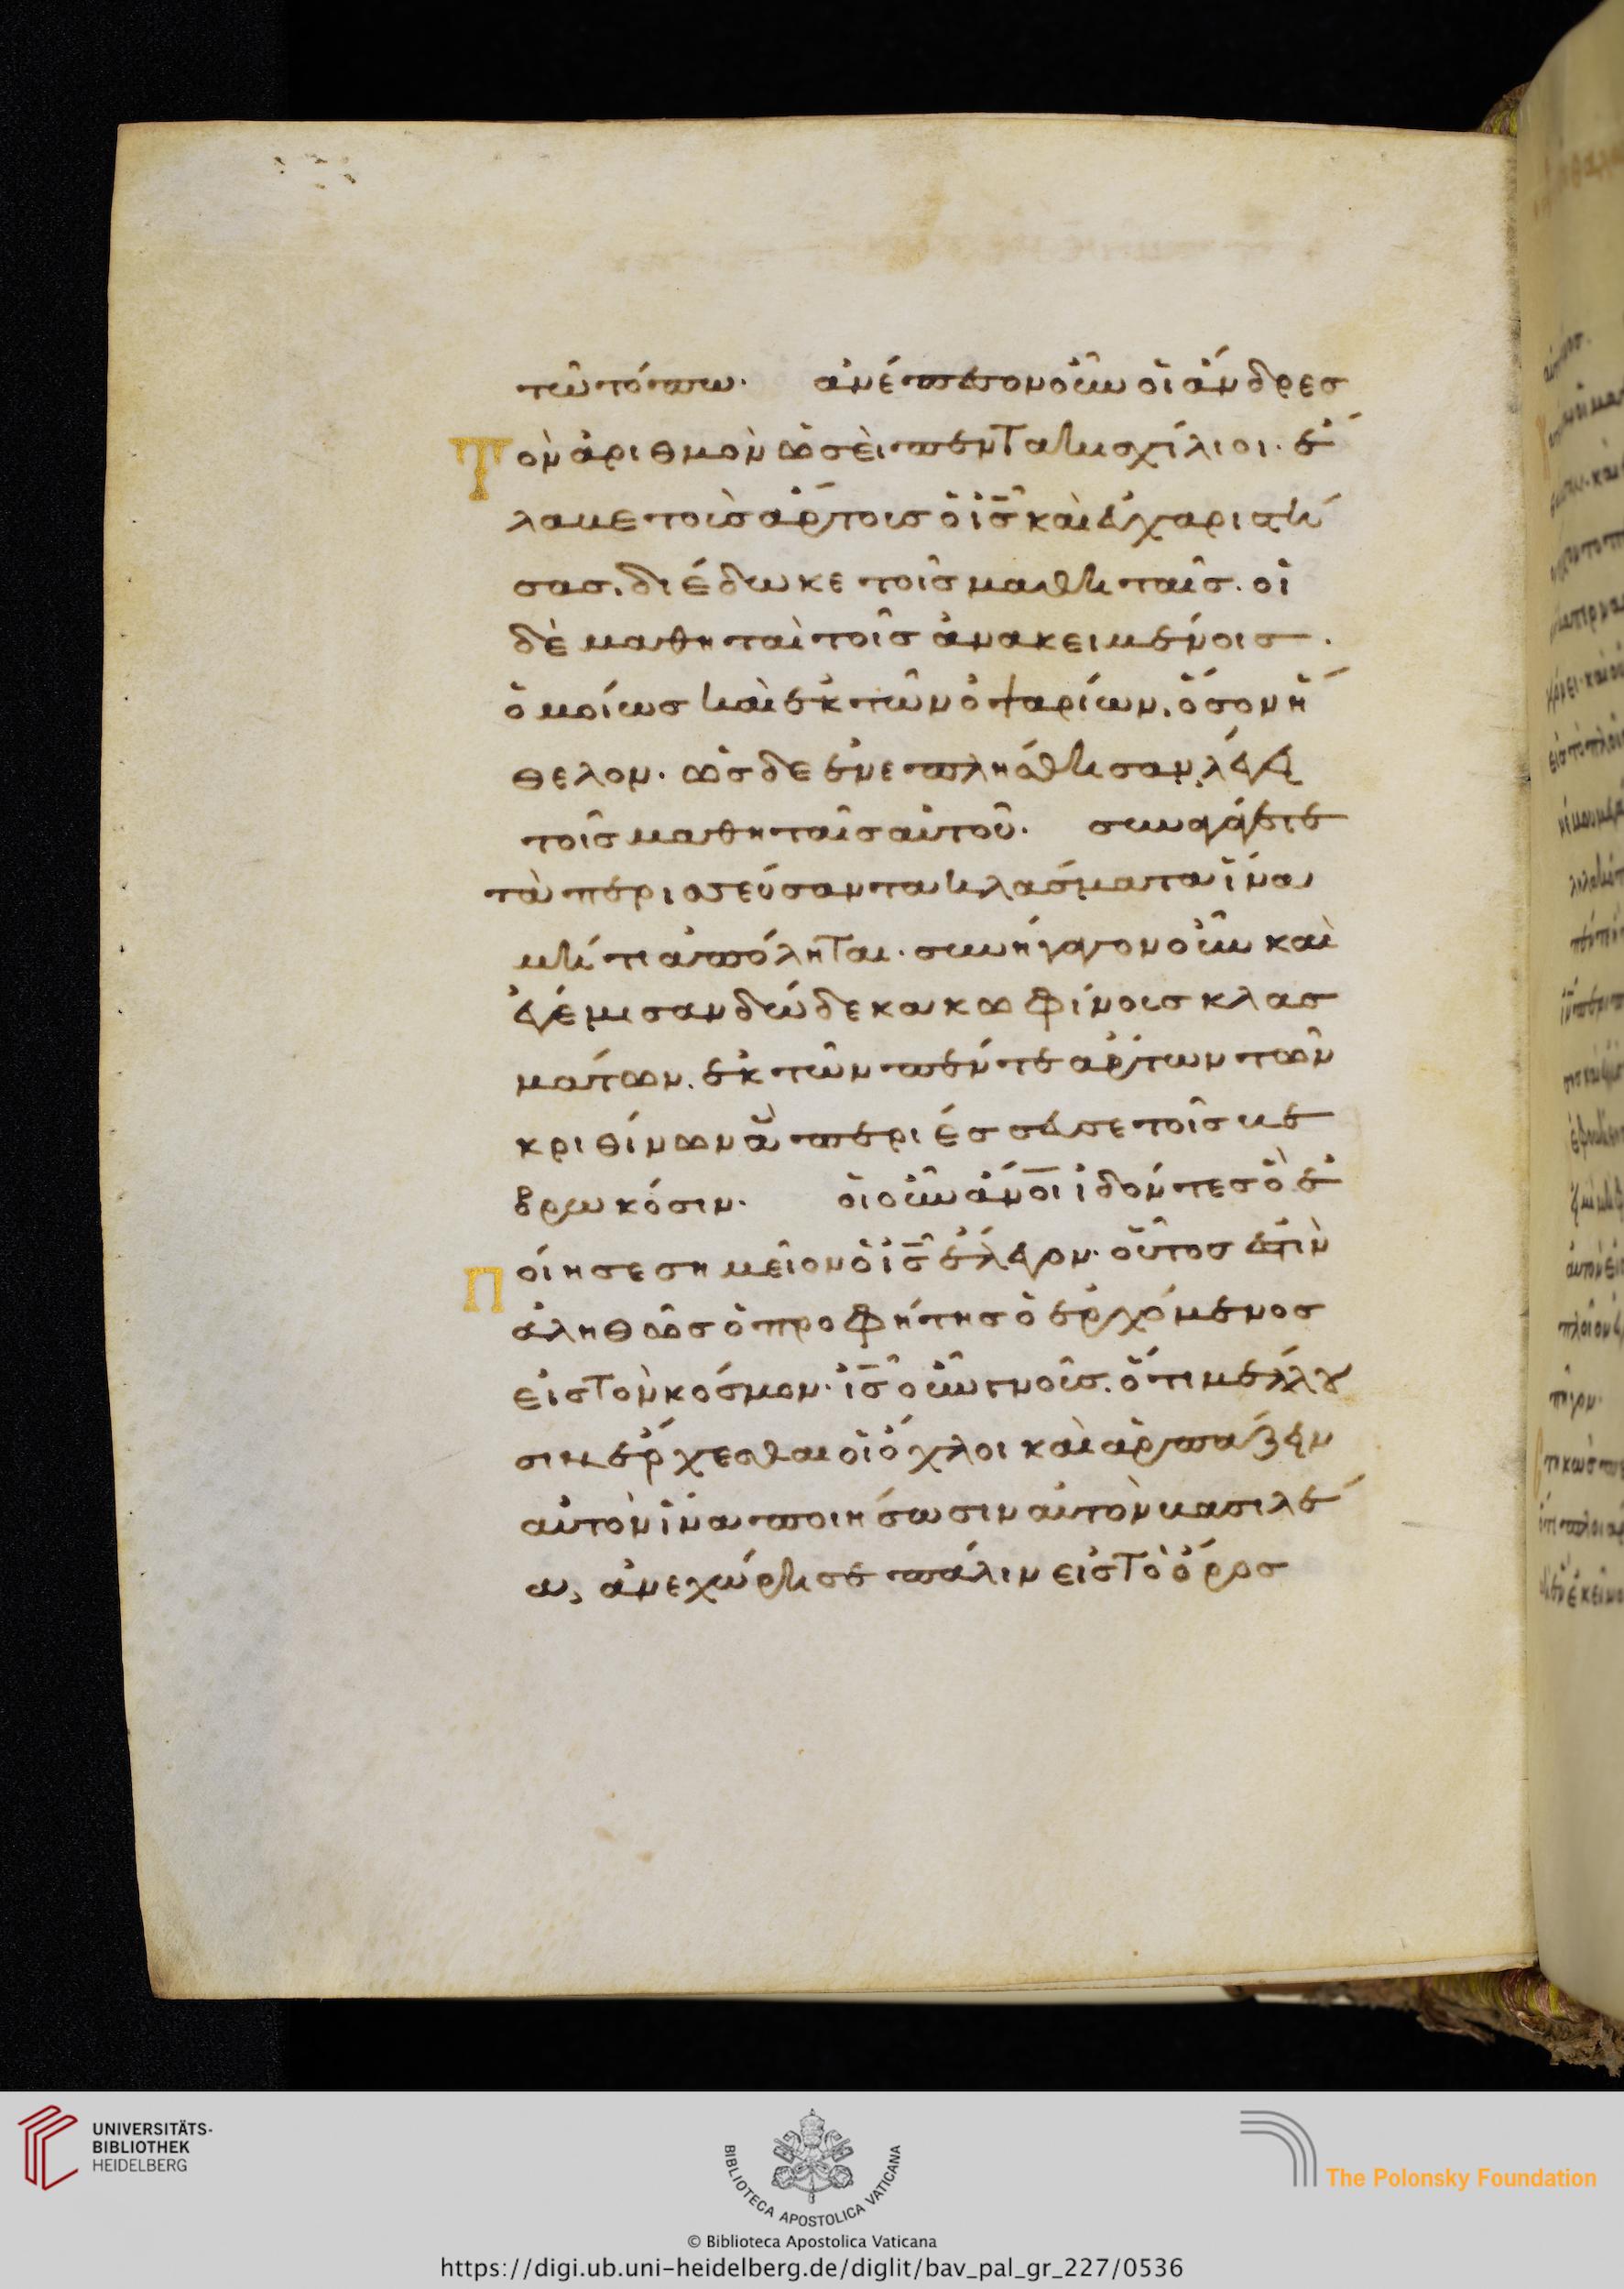 τῶ τόπω. ἀνέπεσον οὖν οἱ ἄνδρεσ
Τὸν ἀριθμὸν ὡσεὶ πεντακισχίλιοι. ἔ
λαβε τοὺσ ἄρτουσ ὁ ἰ̅σ̅ καὶ εὐχαριστή
σασ, διέδωκε τοῖσ μαθηταῖσ. οἱ
δὲ μαθηταὶ τοῖσ ἀνακειμένοισ.
ὁμοίωσ καὶ ἐκ τῶν ὀψαρίων, ὅσον ἤ
θελον. ὡσ δὲ ἐνεπλήσθησαν, λέγει
τοῖσ μαθηταῖσ αὐτοῦ. συναγάγετε
τὰ περισσεύσαντα κλάσματα ἵνα
μή τι ἀπόληται. συνήγαγον οὖν καὶ
ἐγέμισαν δώδεκα κοφίνουσ κλασ
μάτων. ἐκ τῶν πέντε ἄρτων τῶν
κριθίνων ἃ περιέσσευσε τοῖσ βε
βρωκόσιν. οἱ οὖν ἄ̅ν̅ο̅ι̅ ἰδόντεσ ὃ ἐ
Ποίησε σημεῖον ὁ ἰ̅σ̅ ἔλεγον. οὗτόσ ἐστιν
ἀληθῶσ ὁ προφήτησ ὁ ἐρχόμενοσ
εἰσ τὸν κόσμον. ἰ̅σ̅ οὖν γνοὺσ. ὅτι μέλλου
σιν ἔρχεσθαι οἱ ὄχλοι καὶ ἁρπάζειν
αὐτὸν ἵνα ποιήσωσιν αὐτὸν βασιλέ
α, ἀνεχώρησε πάλιν εἰσ τὸ ὄροσ
UNIVERSITÄTS-
BIBLIOTHEK
HEIDELBERG
BIBLIOTECA APOSTOLICA VATICANA
The Polonsky Foundation
© Biblioteca Apostolica Vaticana
https://digi.ub.uni-heidelberg.de/diglit/bav_pal_gr_227/0536